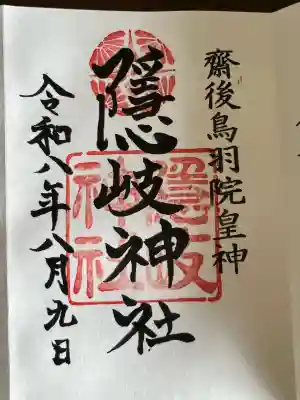 齋後鳥羽院皇神
隠岐神社
隠岐
神社
令和八年八月九日